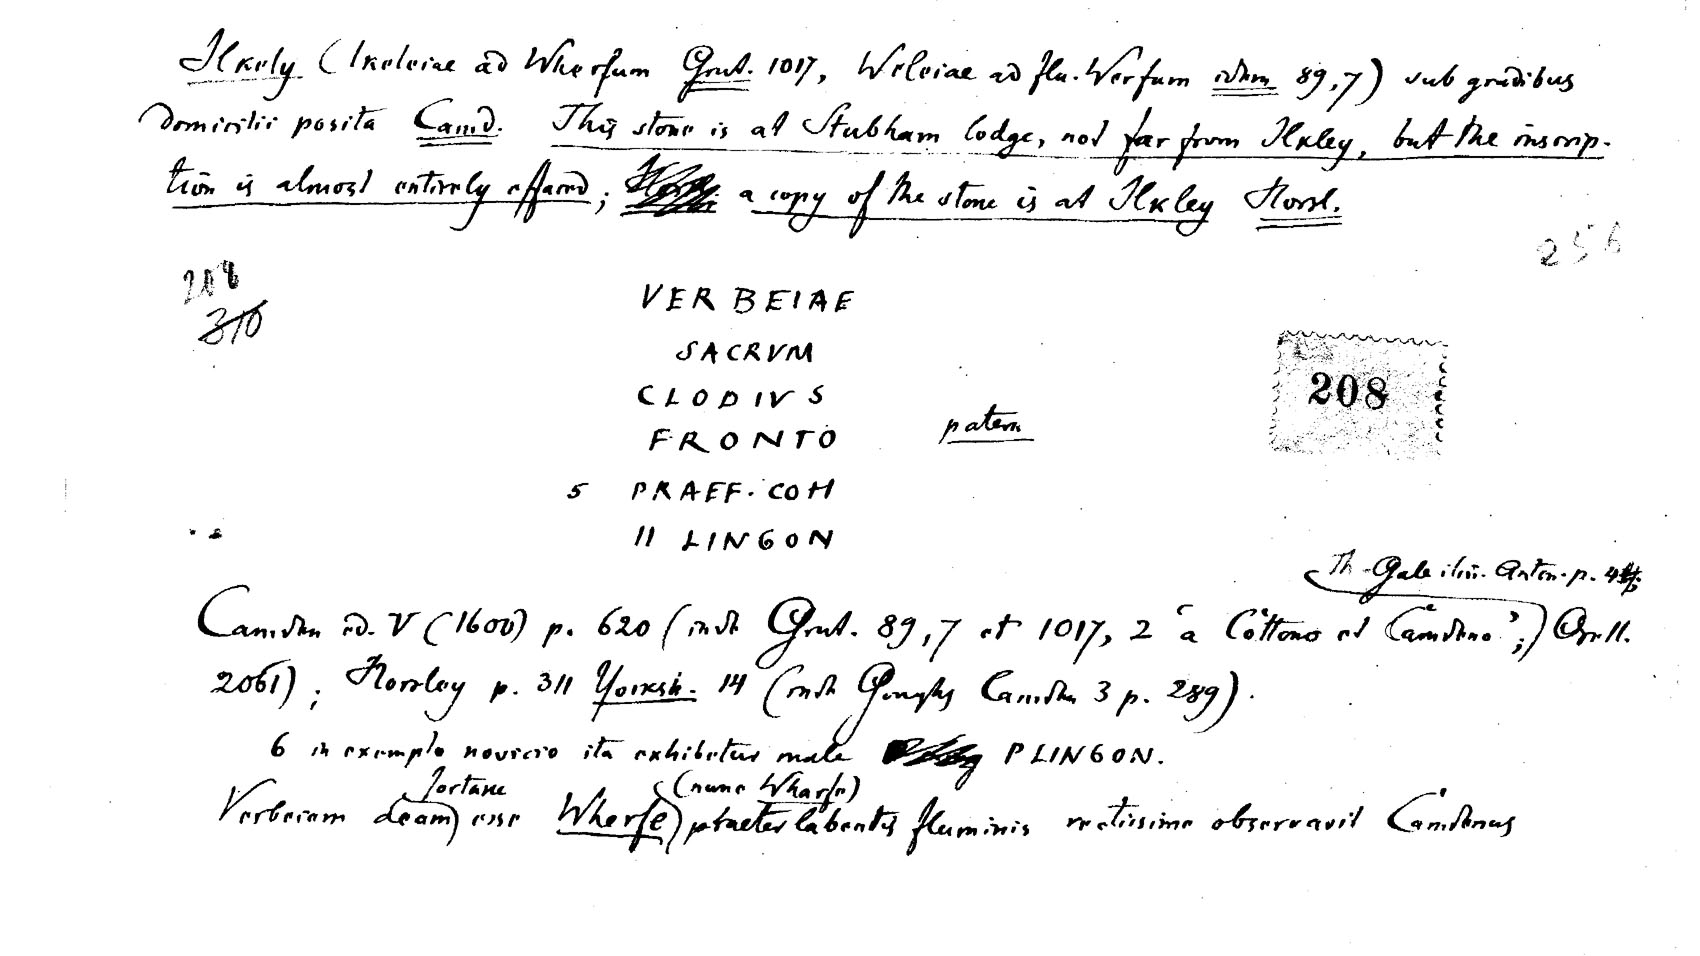 Ilkely (Ikeleiae ad Wherfum Grut. 1017, Weleiae ad flu. Werfum idem 89,7) sub gradibus
domicilii posita Camd. This stone is at Stubham lodge, not far from Ilkley, but the inscrip-
tion is almost entirely effaced; a copy of the stone is at Ilkley Horsl.
256
208
310
VERBEIAE
SACRVM
CLODIVS
208
FRONTO patera
5 PRAEF. COH
II LINGON
Th. Gale itin. Anton. p.
Camden ed. V (1600) p. 620 (inde Grut. 89,7 et 1017, 2 'a Cottono et Camdeno';) Orell.
2061); Horsley p. 311 Yorksh. 14 (inde Goughs Camden 3 p. 289).
6 in exemplo novicio ita exhibetur male PLINGON.
fortasse (nunc Wharfe)
Verbeiam deam esse Wherfe) praeterlabentis fluminis rectissime observavit Camdenus